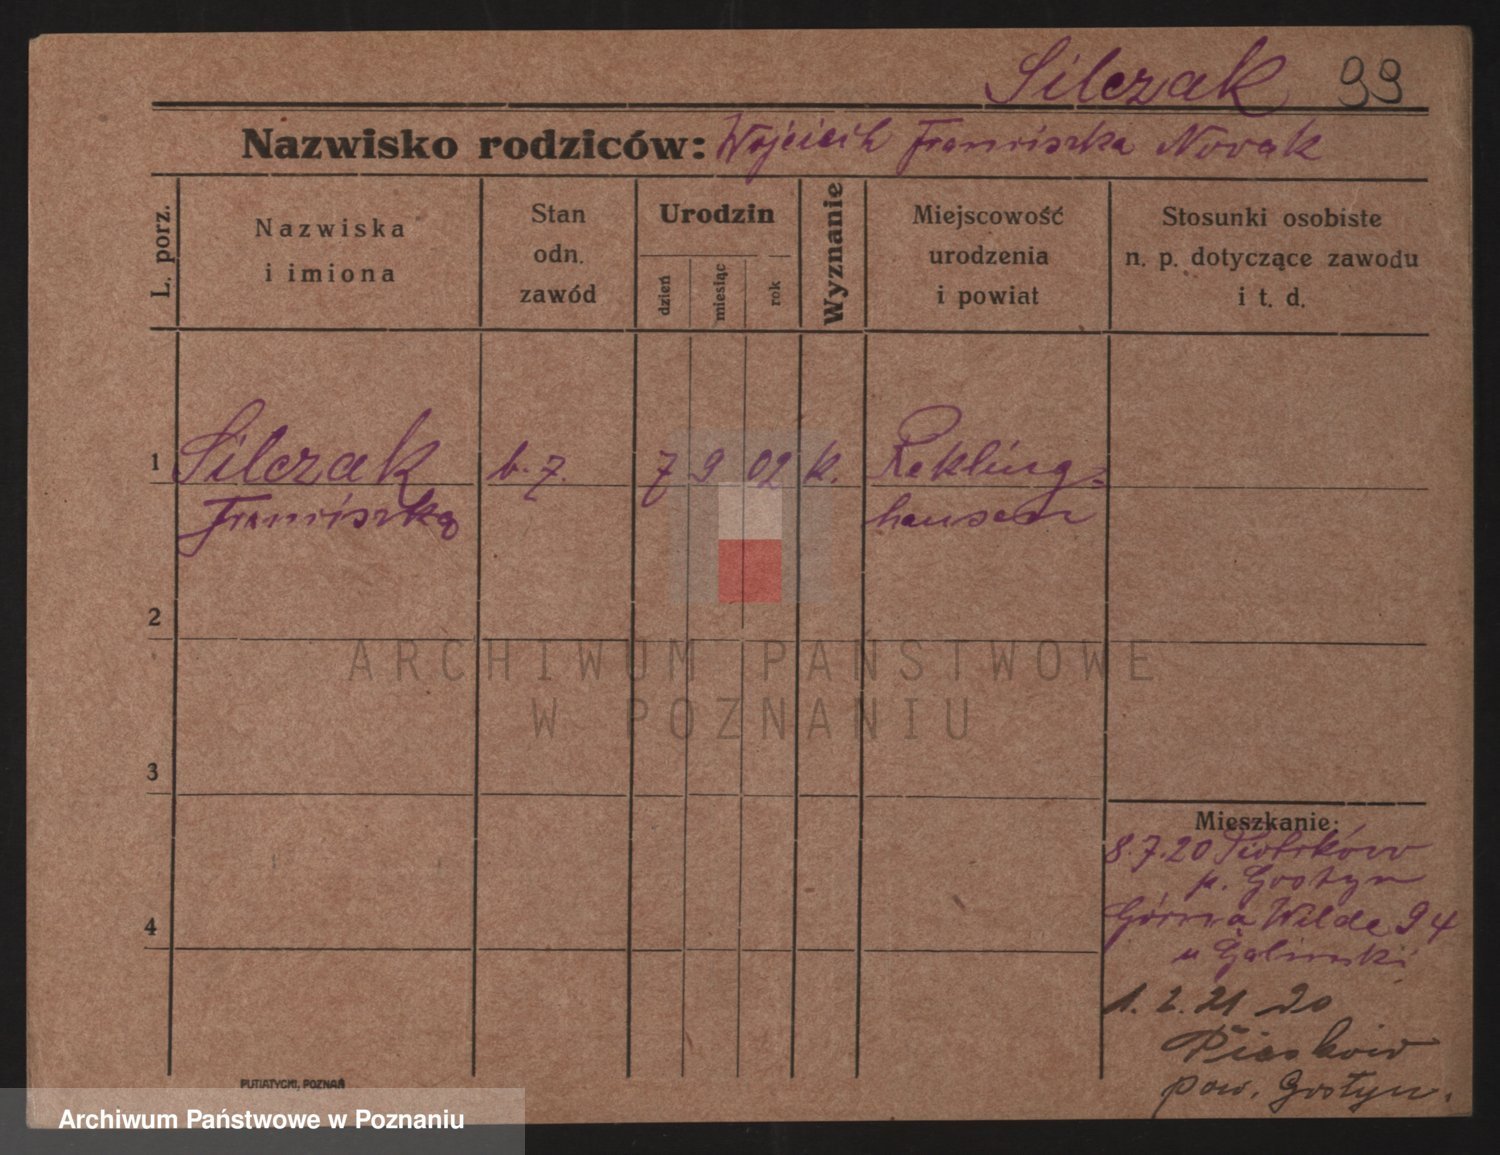 Silczak 99
Nazwisko rodziców: Wojciech Franciszka Nowak
L. porz.
Nazwiska
i imiona
Stan
odn.
zawód
Urodzin
dzień
miesiąc
rok
Wyznanie
Miejscowość
urodzenia
i powiat
Stosunki osobiste
n. p. dotyczące zawodu
i t. d.
1 Silczak b. z. 7 9 02 k. Rekling=
Franciszka hausen
2
ARCHIWUM PAŃSTWOWE
W POZNANIU
3
Mieszkanie:
8.7.20 Piotrków
p. Gostyn
4 Górna Wilda 94
u Galinski
1. 2. 21 do
Piasków
pow. Gostyn.
PUTIATYCKI, POZNAŃ
Archiwum Państwowe w Poznaniu